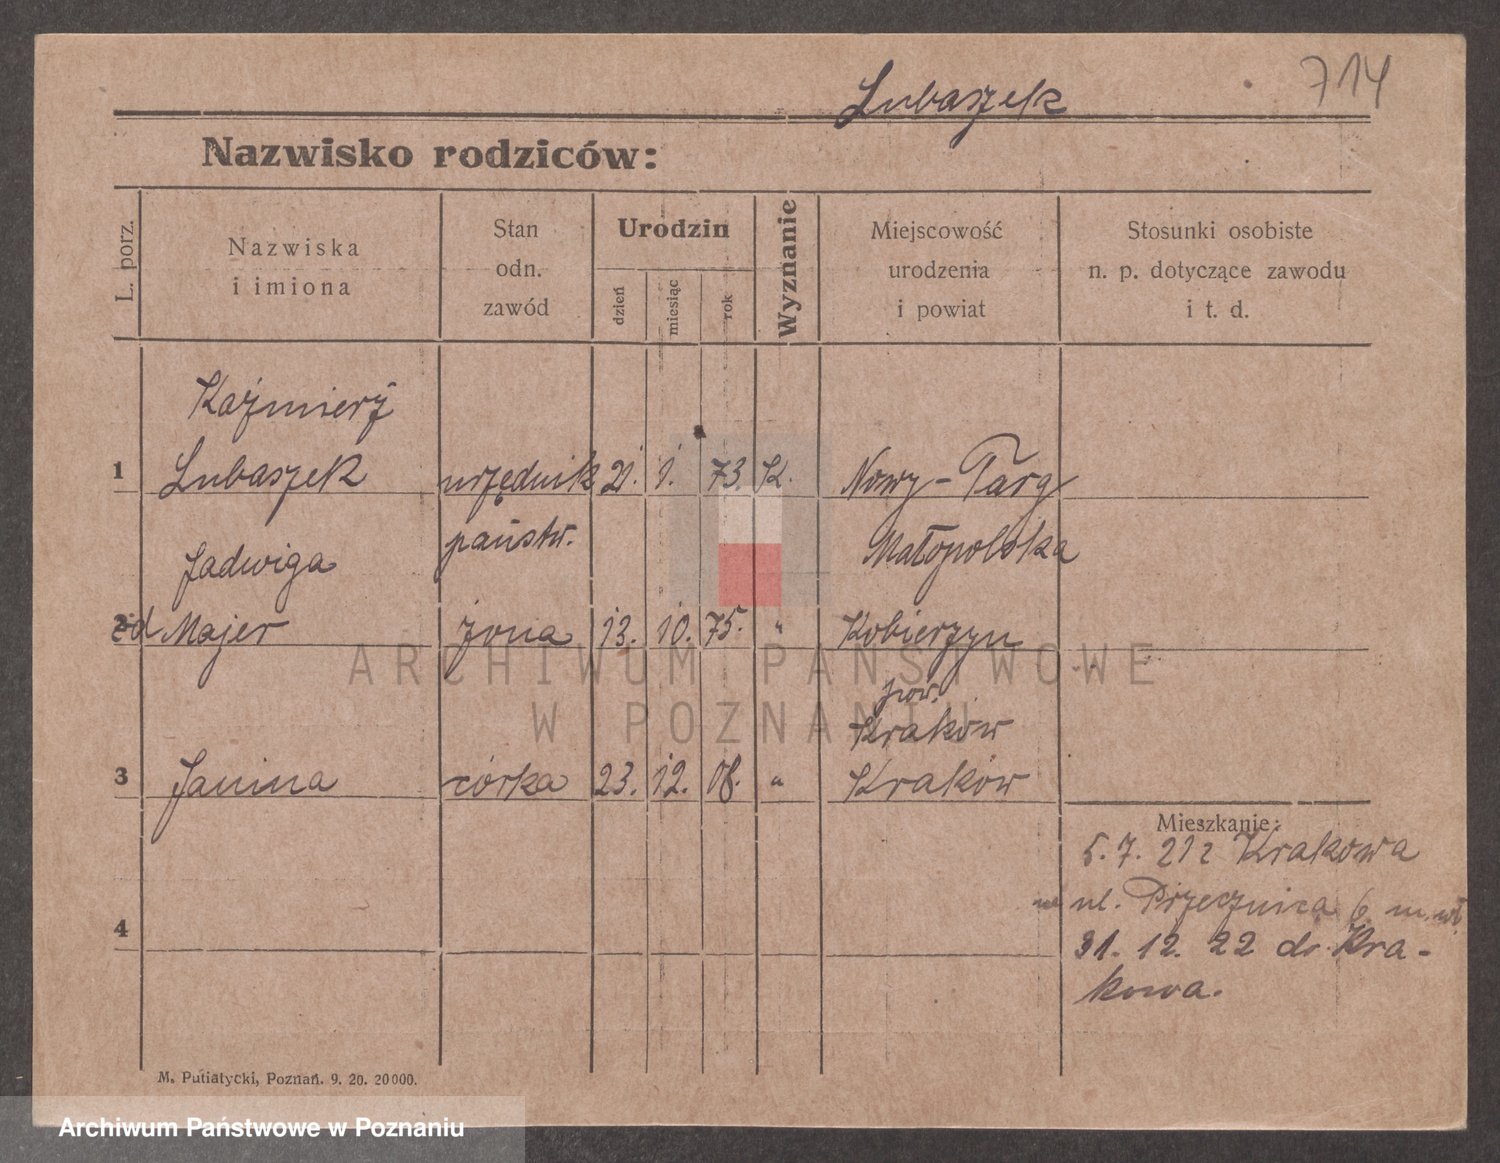 714
Lubaszek
Nazwisko rodziców:
L. porz.
Nazwiska
i imiona
Stan
odn.
zawód
Urodzin
dzień
miesiąc
rok
Wyznanie
Miejscowość
urodzenia
i powiat
Stosunki osobiste
n. p. dotyczące zawodu
i t. d.
Kaźmierz
1 Lubaszek urzędnik 21. 1. 73. K. Nowy-Targ
państw. Małopolska
Jadwiga
2 zd Majer żona 13. 10. 75. " Kobierzyn
pow.
Kraków
3 Janina córka 23. 12. 08. " Kraków
Mieszkanie:
5. 7. 21 z Krakowa
ul. Przecznica 6 m.
4
31. 12. 22 do Kra-
kowa.
M. Putiatycki, Poznań. 9. 20. 20000.
ARCHIWUM PAŃSTWOWE
W POZNANIU
Archiwum Państwowe w Poznaniu